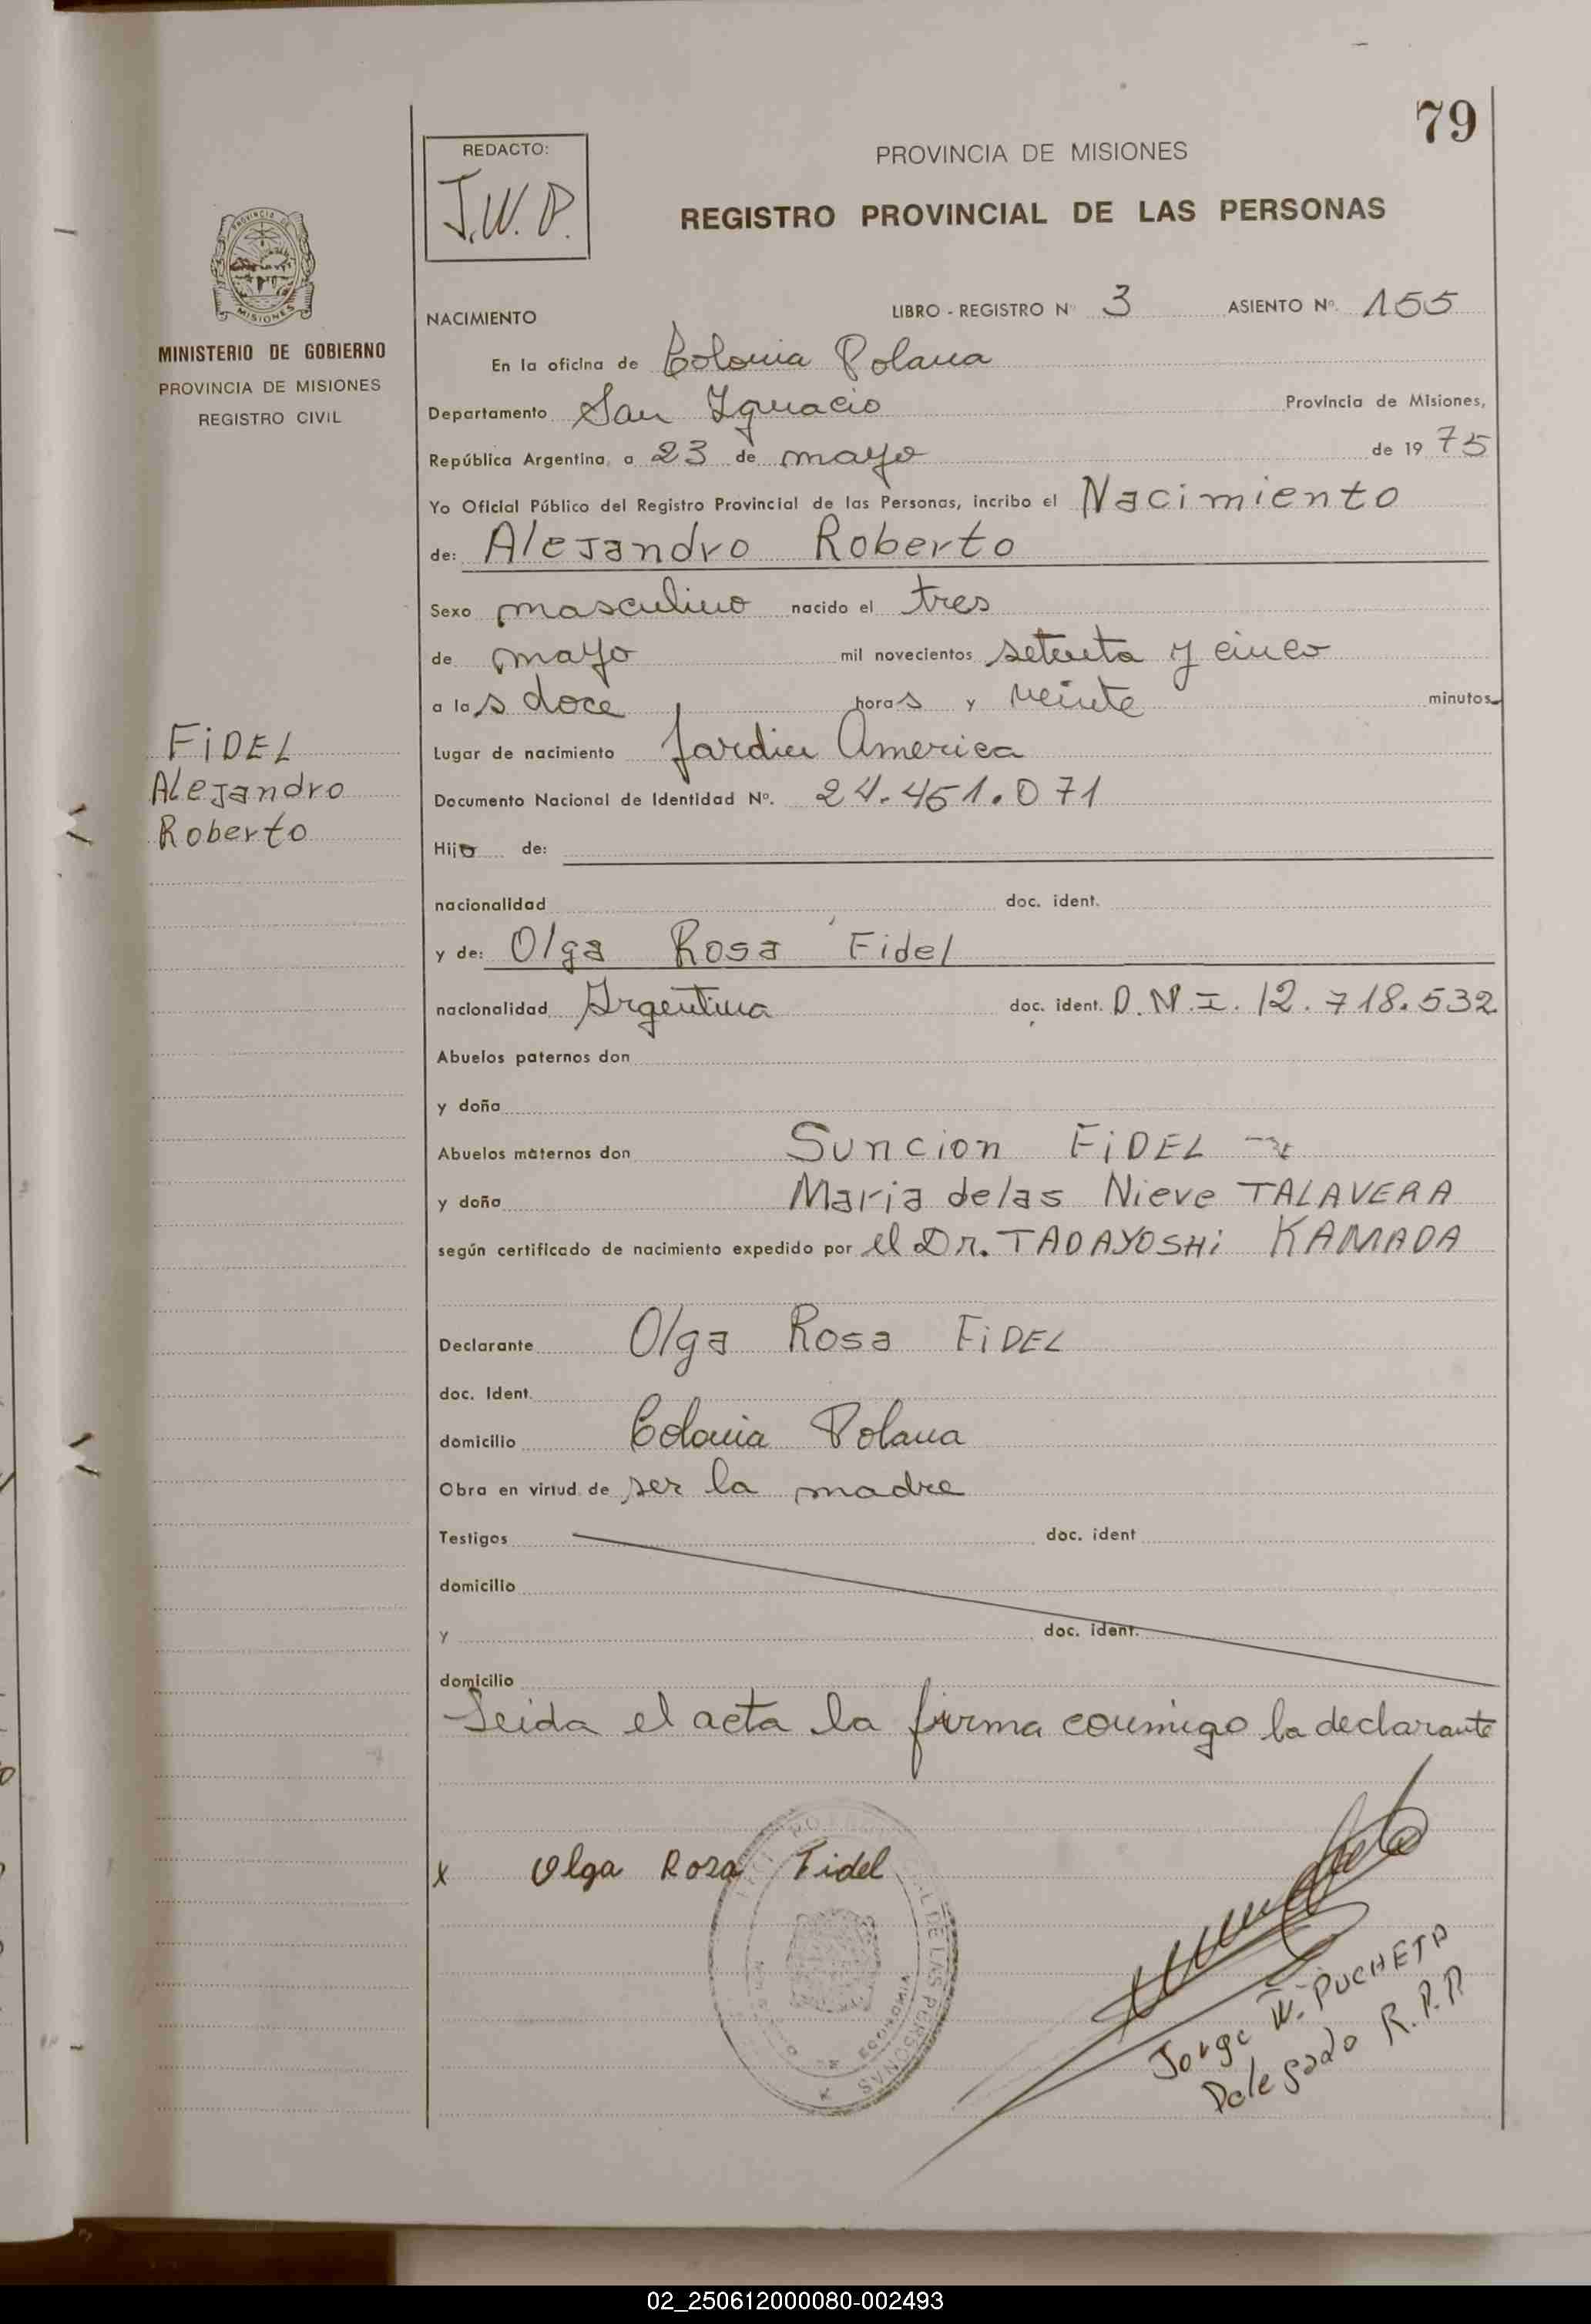 79
REDACTO:
J.W.P.
PROVINCIA DE MISIONES
REGISTRO PROVINCIAL DE LAS PERSONAS
PROVINCIA DE
MISIONES
MINISTERIO DE GOBIERNO
PROVINCIA DE MISIONES
REGISTRO CIVIL
NACIMIENTO LIBRO - REGISTRO Nº 3 ASIENTO Nº. 155
En la oficina de Colonia Polana
Departamento San Ygnacio Provincia de Misiones,
República Argentina, a 23 de mayo de 1975
Yo Oficial Público del Registro Provincial de las Personas, incribo el Nacimiento
de: Alejandro Roberto
Sexo masculino nacido el tres
de mayo mil novecientos setenta y cinco
a las doce horas y veinte minutos
FiDEL
Alejandro
Roberto
Lugar de nacimiento Jardin America
Documento Nacional de Identidad Nº. 24.451.071
Hijo de:
nacionalidad doc. ident.
y de: Olga Rosa Fidel
nacionalidad Argentina doc. ident. D.N.I. 12.718.532
Abuelos paternos don
y doña
Abuelos maternos don Suncion FiDEL
y doña Maria de las Nieve TALAVERA
según certificado de nacimiento expedido por el Dr. TADAYOSHi KAMADA
Declarante Olga Rosa FiDEL
doc. Ident.
domicilio Colonia Polana
Obra en virtud de ser la madre
Testigos doc. ident
domicilio
y doc. ident.
domicilio
Leida el acta la firma conmigo la declarante
x Olga Rosa Fidel
DE LAS PERSONAS
ECONOMIA
Jorge W. PUCHETA
Delegado R.P.P
02_250612000080-002493